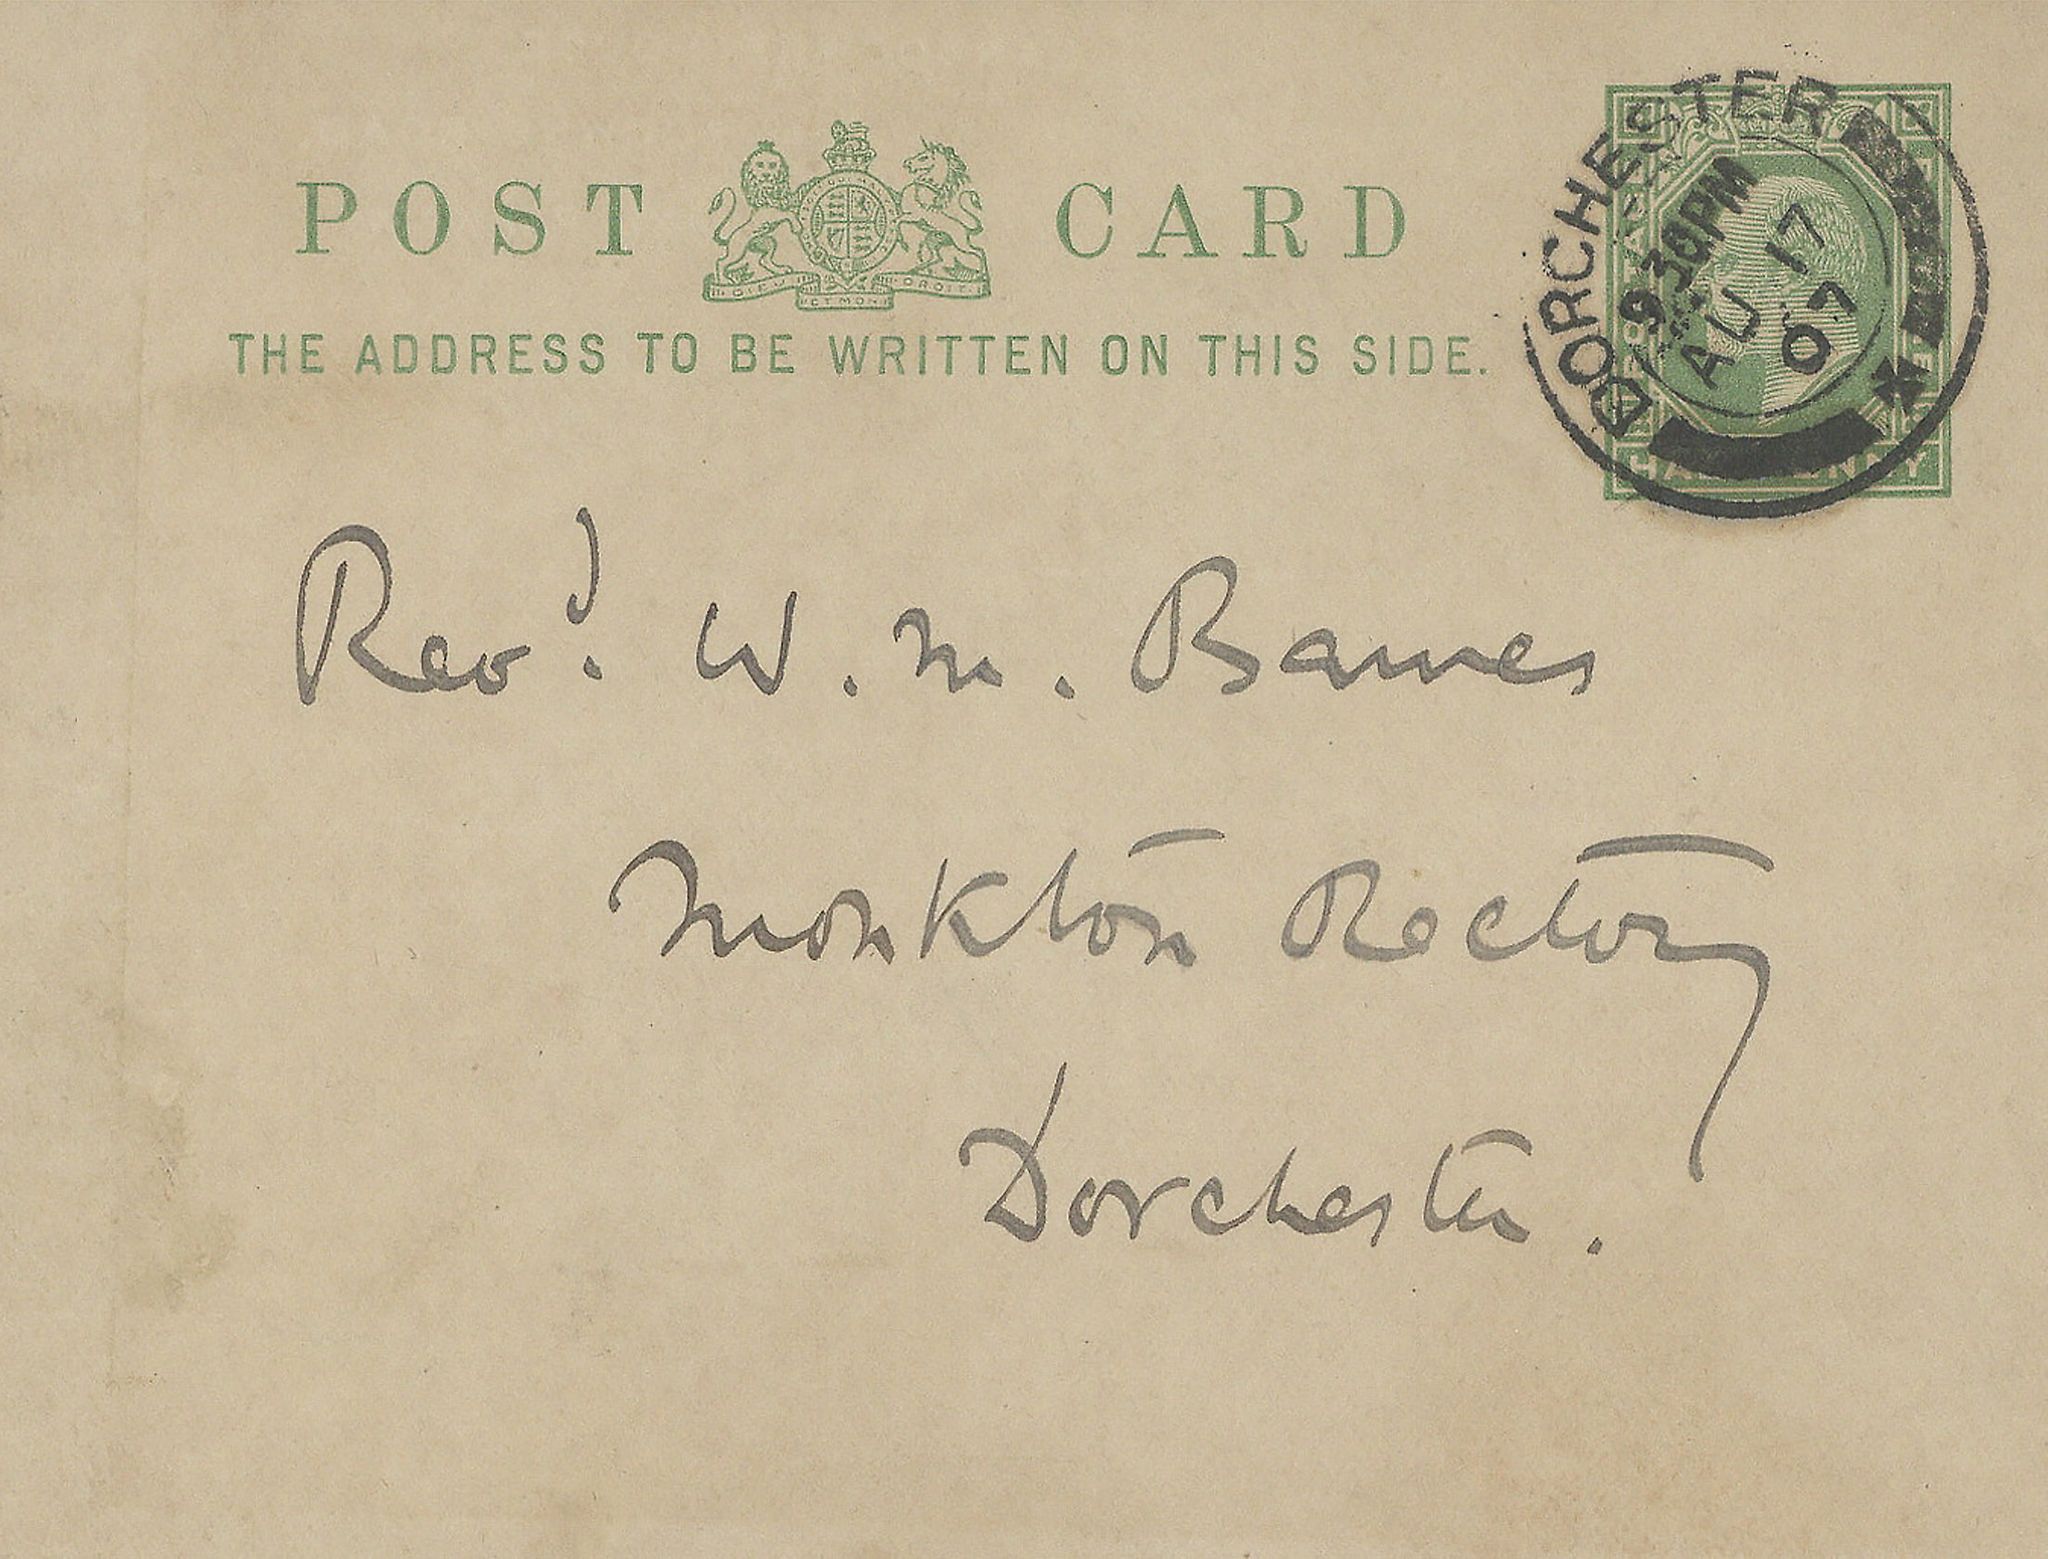 POST CARD
DIEU ET MON DROIT
THE ADDRESS TO BE WRITTEN ON THIS SIDE.
DORCHESTER
9.30PM
AU 17
07
HALFPENNY
Revd. W. M. Barnes
Monkton Rectory
Dorchester.